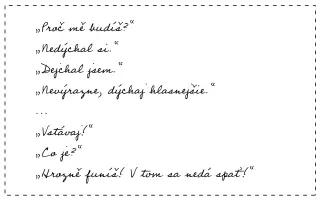 „Proč mě budíš?“
„Nedýchal si.“
„Dejchal jsem.“
„Nevýrazne, dýchaj hlasnejšie.“
...
„Vstávaj!“
„Co je?“
„Hrozně funíš! V tom sa nedá spať!“